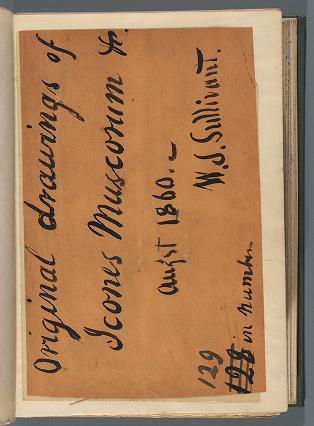 Original drawings of
Icones Muscorum &c.
Augst 1860.–
W. S. Sullivant.
129
128 in number